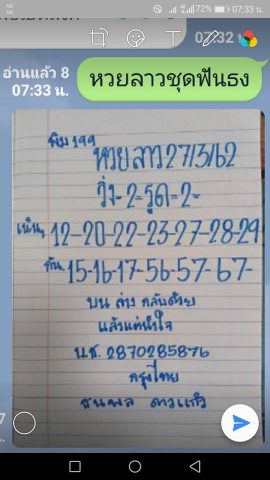 72% 07:33 น.
07:32 น.
อ่านแล้ว 8
07:33 น.
หวยลาวชุดฟันธง
พิม 199
หวยลาว 27/3/62
วิ่ง-2=รูด=2=
เน้น, 12-20-22-23-27-28-29
กัน. 15-16-17-56-57-67-
บน ล่าง กลับด้วย
แล้วแต่น้ำใจ
บ.ช. 2870285876
กรุงไทย
ธนพล ดาวแก้ว